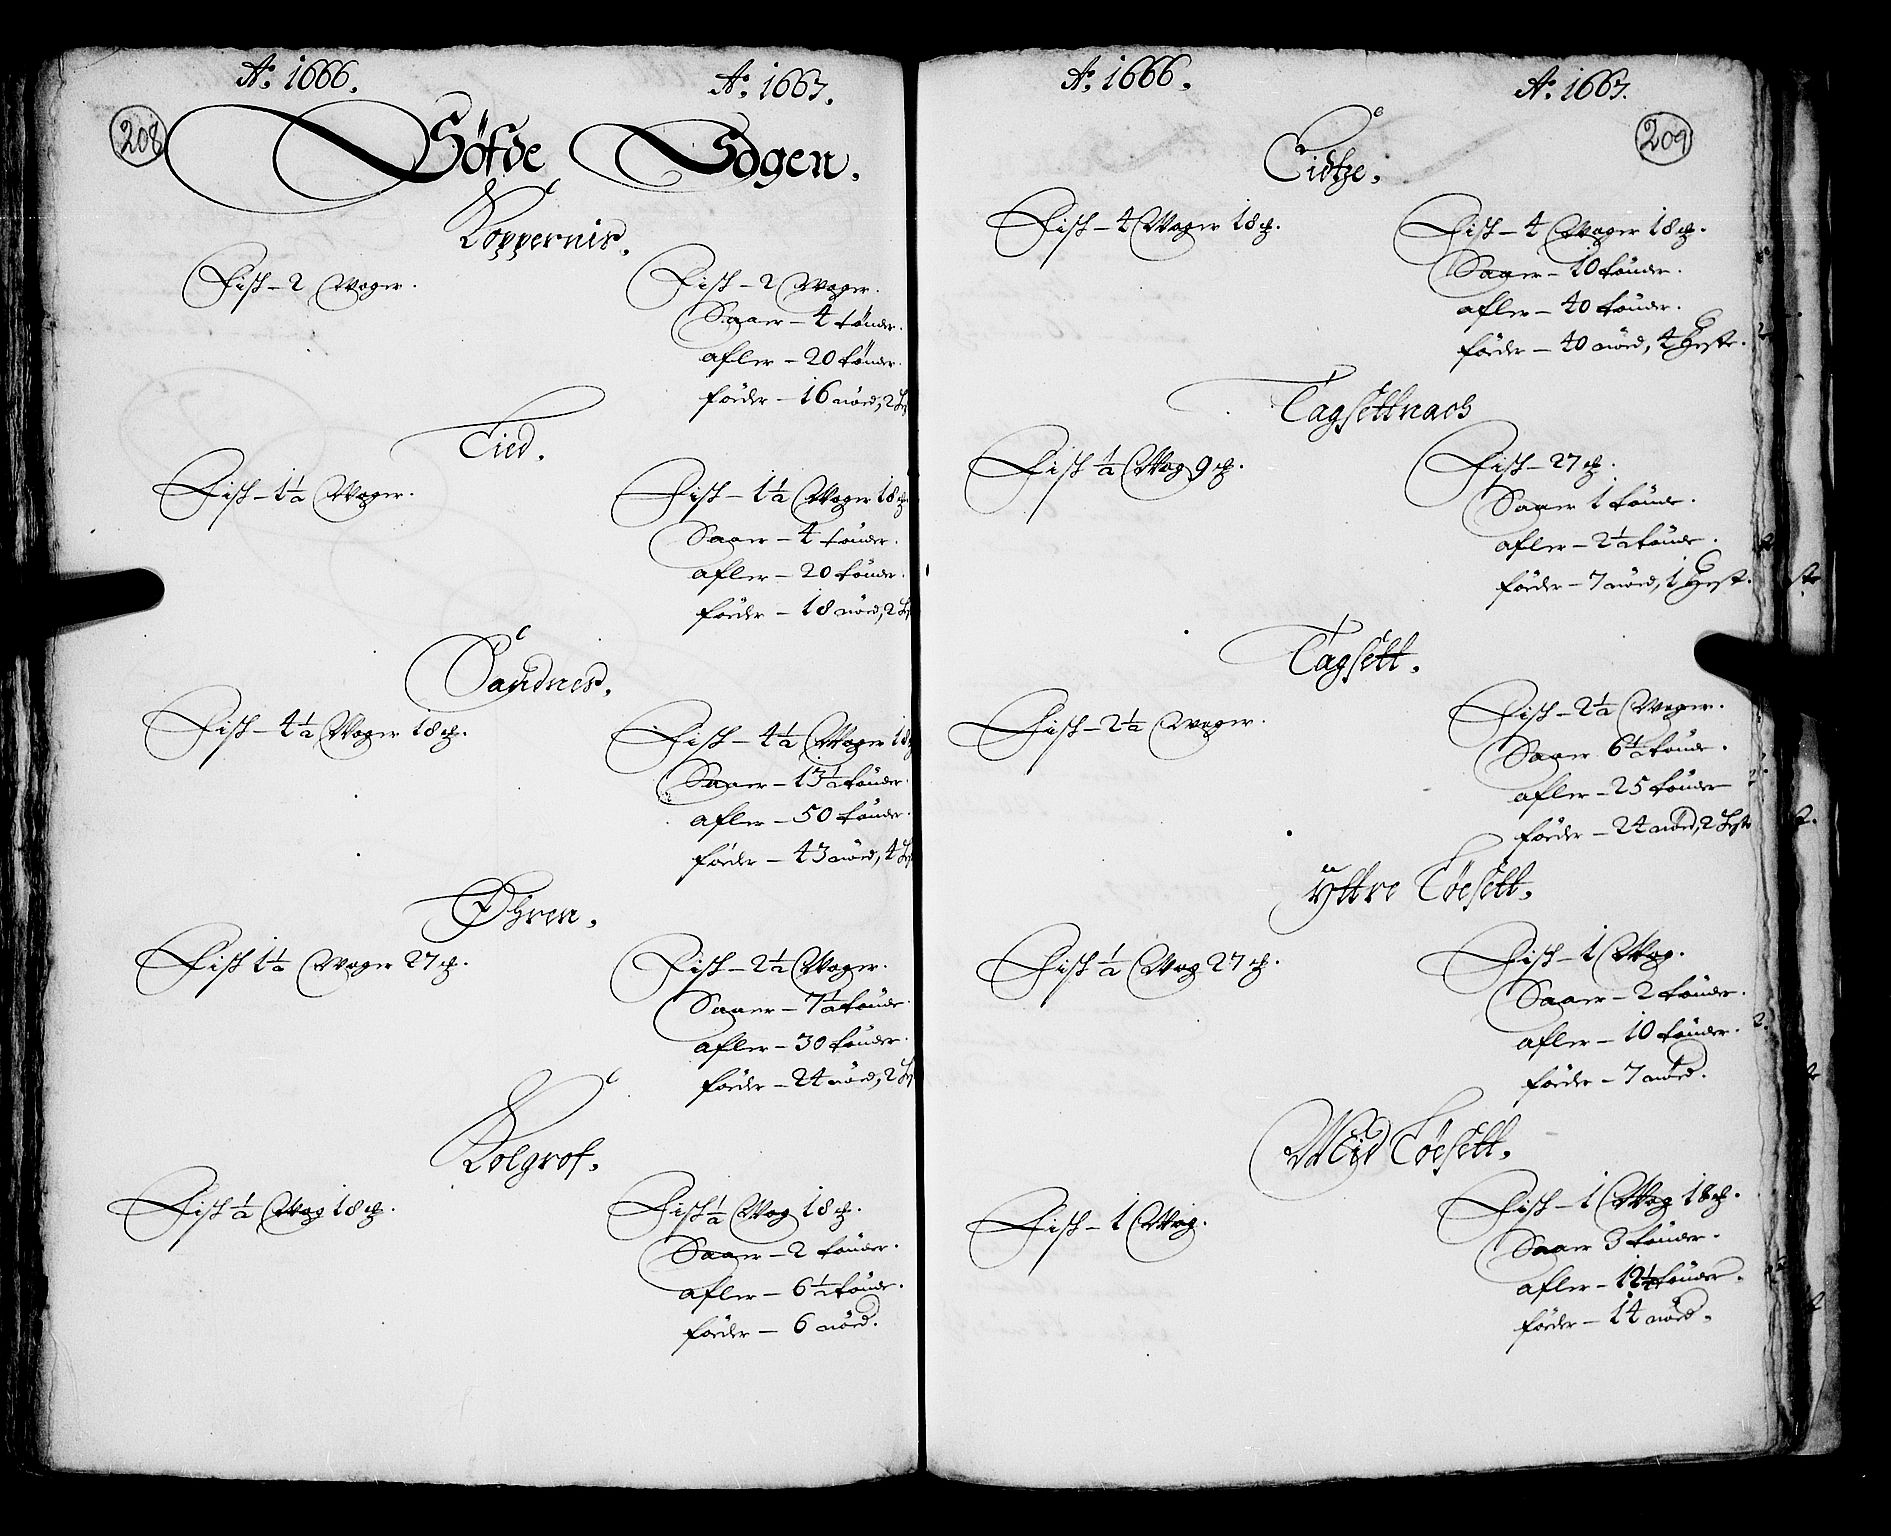 208
Aº. 1666. Aº. 1667.
Söfde Sogen.
Koppernis.
Fisk – 2 Woger. Fisk – 2 Woger.
Saaer – 4 tönder.
afler – 20 tönder.
föeder – 16 nöed, 2
Tied.
Fisk – 1½ Woger. Fisk – 1½ Woger 18 ℔
Saaer – 4 tönder.
afler – 20 tönder.
föeder – 18 nöed, 2
Sandnes.
Fisk – 4½ Woger 18 ℔. Fisk – 4½ Woger 18
Saaer – 13½ tönder.
afler – 50 tönder.
föeder – 43 nöed, 4
Øhren.
Fisk 1½ Woger 27 ℔. Fisk – 2½ Woger.
Saaer – 7½ tönde
afler – 30 tönder.
föeder – 24 nöed, 2
Kolgrof.
Fisk ½ Wog 18 ℔. Fisk ½ Wog 18 ℔.
Saaer – 2 tönder.
afler – 6½ tönde.
föeder – 6 nöed.
209
Aº. 1666. Aº. 1667.
Fisk – 4 Woger 18 ℔. Fisk – 4 Woger 18 ℔.
Saaer – 10 tönder.
afler – 40 tönder.
föeder – 40 nöed, 4 Heste.
Tagsettnach
Fisk ½ Wog 9 ℔. Fisk – 27 ℔.
Saaer 1 tönde.
afler – 2½ tönde.
föeder – 7 nöed, 1 Hest.
Tagsett.
Fisk – 2½ Woger. Fisk – 2½ Woger.
Saaer 6½ tönde.
afler – 25 tönder
föeder – 24 nöed, 2 Heste
Yttre Töesett.
Fisk ½ Wog 27 ℔. Fisk – 1 Wog.
Saaer – 2 tönder.
afler – 10 tönder.
föeder – 7 nöed.
Mid Töesett.
Fisk – 1 Wog. Fisk – 1 Wog 18 ℔.
Saaer 3 tönder.
afler – 12½ tönder.
föeder – 14 nöed.